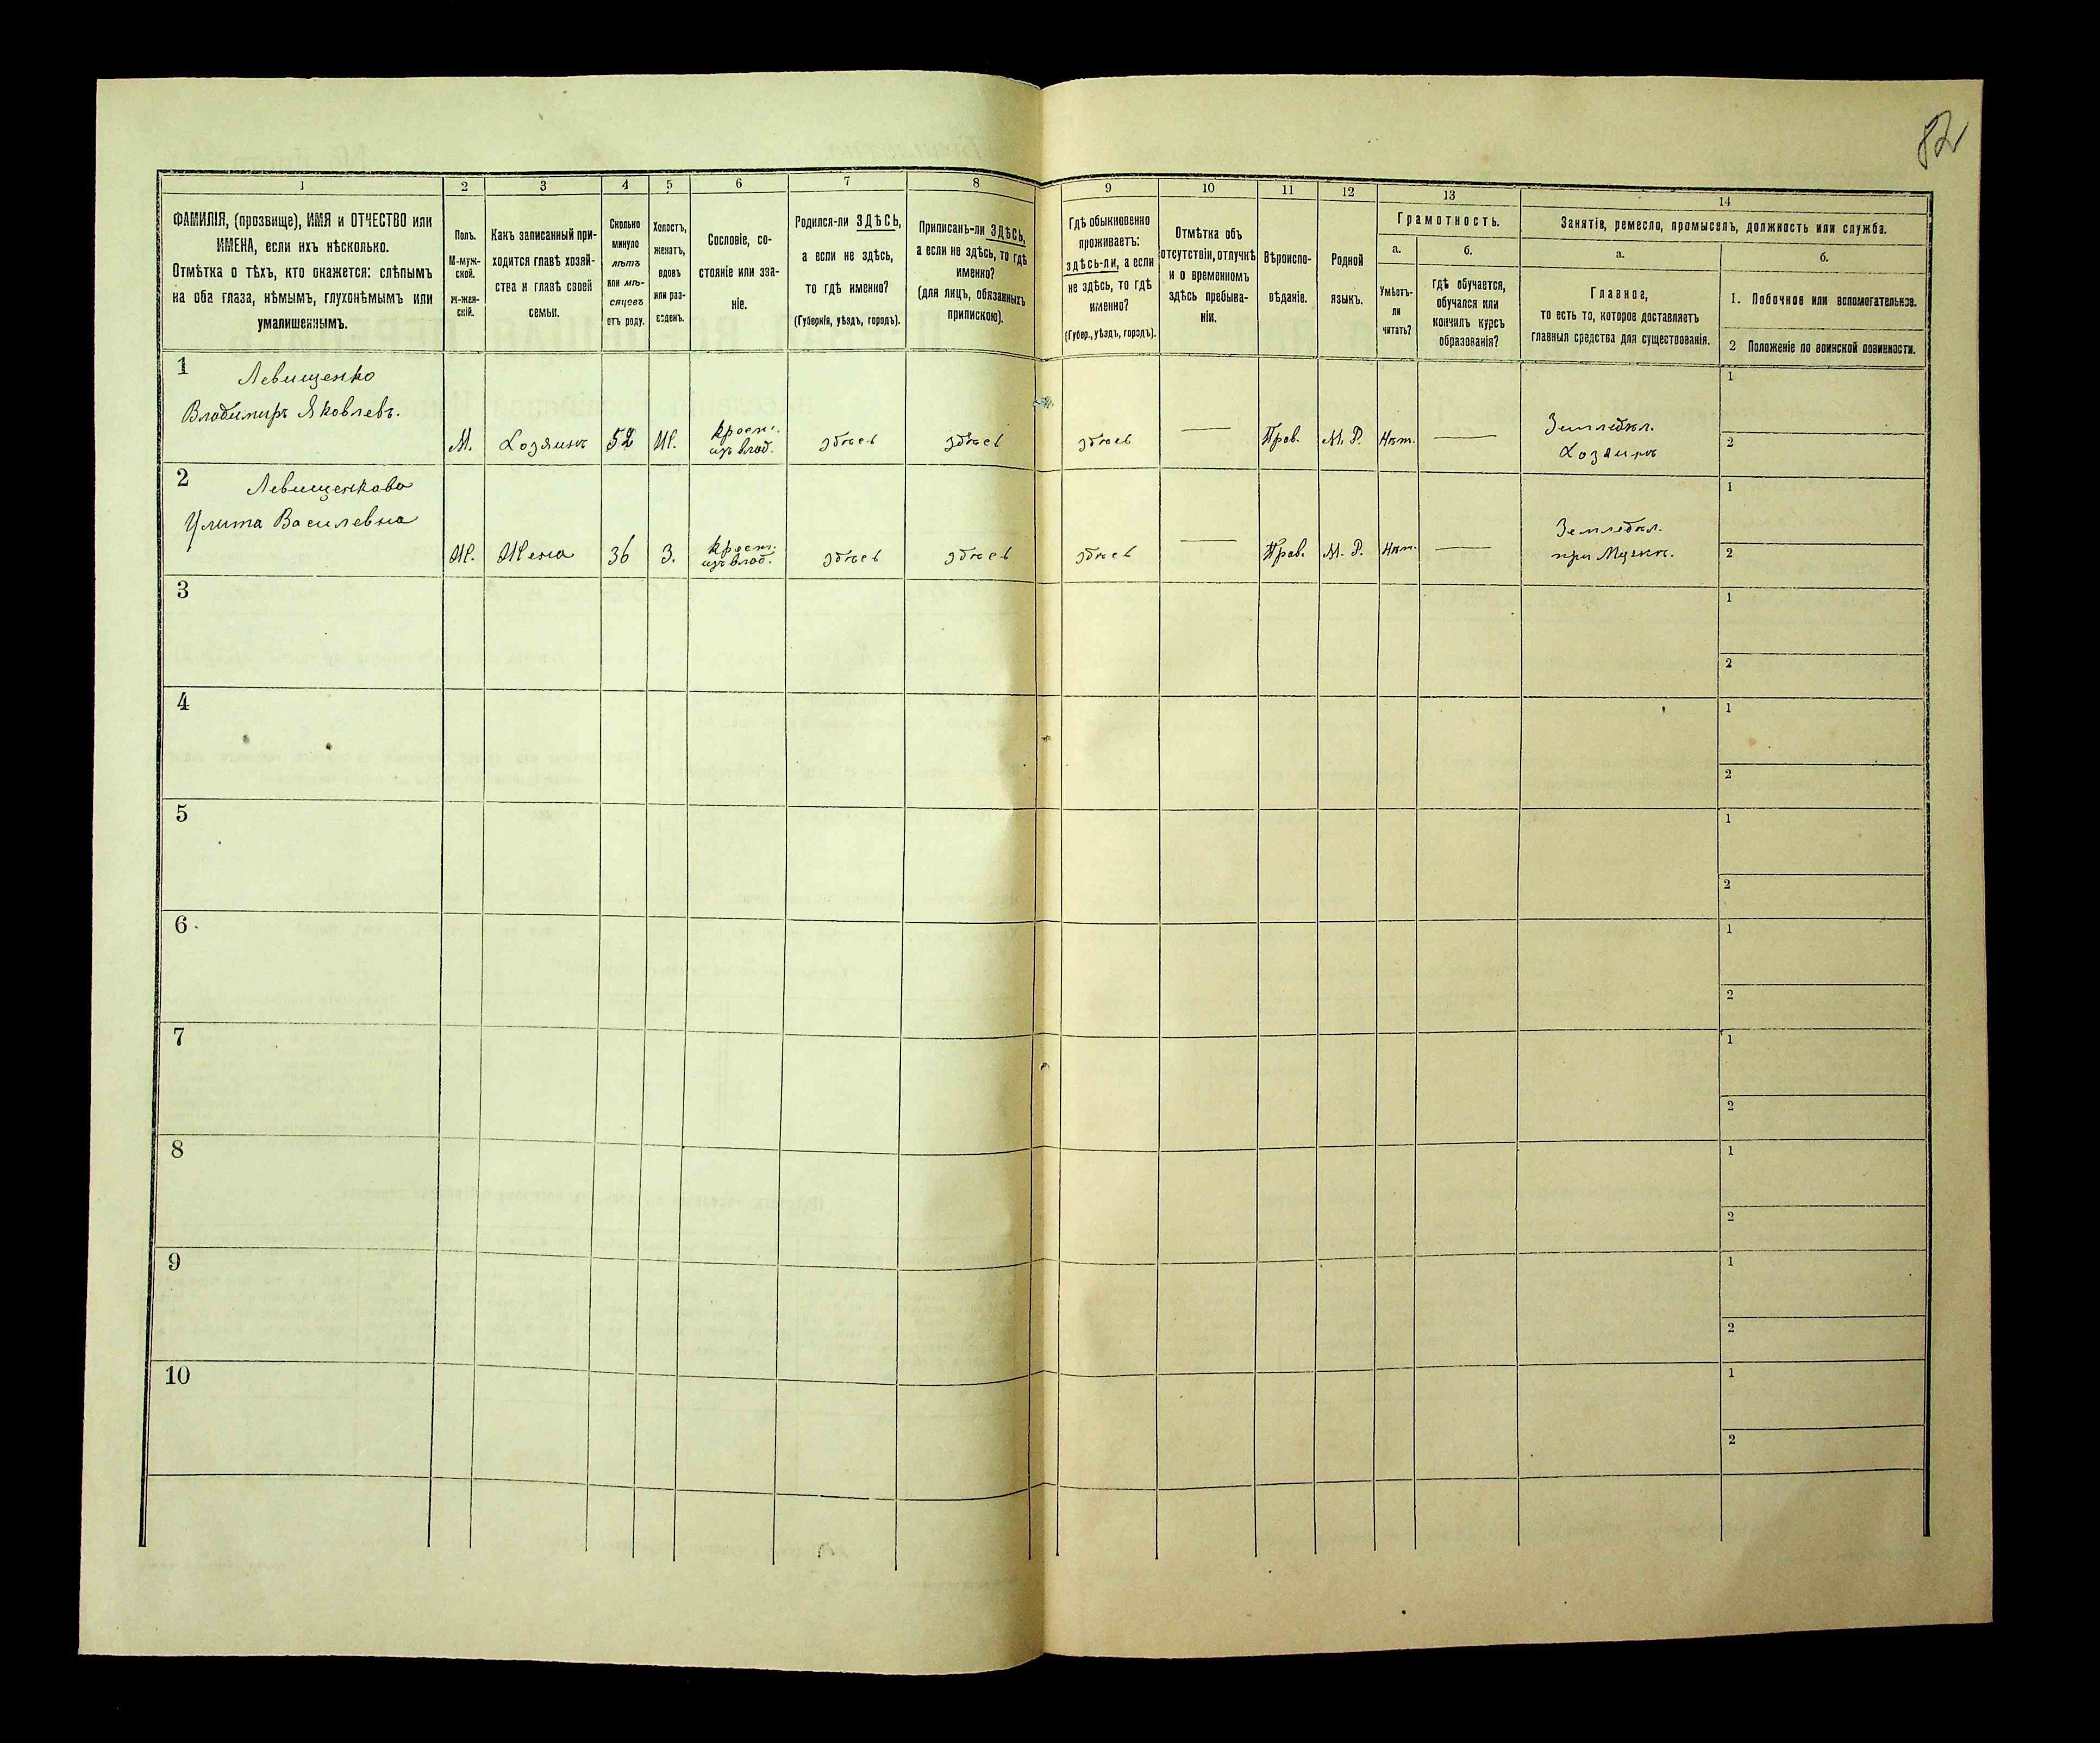 82
1
2
3
4
5
6
7
8
9
10
11
12
13
14
ФАМИЛІЯ, (прозвище), ИМЯ и ОТЧЕСТВО или
ИМЕНА, если ихъ нѣсколько.
Отмѣтка о тѣхъ, кто окажется: слѣпымъ
на оба глаза, нѣмымъ, глухонѣмымъ или
умалишеннымъ.
Полъ.
М-муж-
ской.
Ж-жен-
скій.
Какъ записанный при-
ходится главѣ хозяй-
ства и главѣ своей
семьи.
Сколько
минуло
лѣтъ
или мѣ-
сяцевъ
отъ роду.
Холостъ,
женатъ,
вдовъ
или раз-
веденъ.
Сословіе, со-
стояніе или зва-
ніе.
Родился-ли ЗДѢСЬ,
а если не здѣсь,
то гдѣ именно?
(Губернія, уѣздъ, городъ).
Приписанъ-ли ЗДѢСЬ,
а если не здѣсь, то гдѣ
именно?
(для лицъ, обязанныхъ
припискою).
Гдѣ обыкновенно
проживаетъ:
здѣсь-ли, а если
не здѣсь, то гдѣ
именно?
(Губер., уѣздъ, городъ).
Отмѣтка объ
отсутствіи, отлучкѣ
и о временномъ
здѣсь пребыва-
ніи.
Вѣроиспо-
вѣданіе.
Родной
языкъ.
Грамотность.
а.
Умѣетъ-
ли
читать?
б.
гдѣ обучается,
обучался или
кончилъ курсъ
образованія?
Занятіе, ремесло, промыселъ, должность или служба.
а.
Главное,
то есть то, которое доставляетъ
главныя средства для существованія.
б.
1. Побочное или вспомогательное.
2 Положеніе по воинской повинности.
1
Левищенко
Владимиръ Яковлевъ.
М.
Хозяинъ
52
Ж.
Крест.
изъ влад.
здѣсь
здѣсь
здѣсь
—
Прав.
М. Р.
Нѣт.
—
Земледѣл.
Хозяинъ
1
2
2
Левищенкова
Улита Василевна
Ж.
Жена
36
З.
Крест.
изъ влад.
здѣсь
здѣсь
здѣсь
—
Прав.
М. Р.
Нѣт.
—
Земледѣл.
при Мужѣ.
1
2
3
1
2
4
1
2
5
1
2
6
1
2
7
1
2
8
1
2
9
1
2
10
1
2